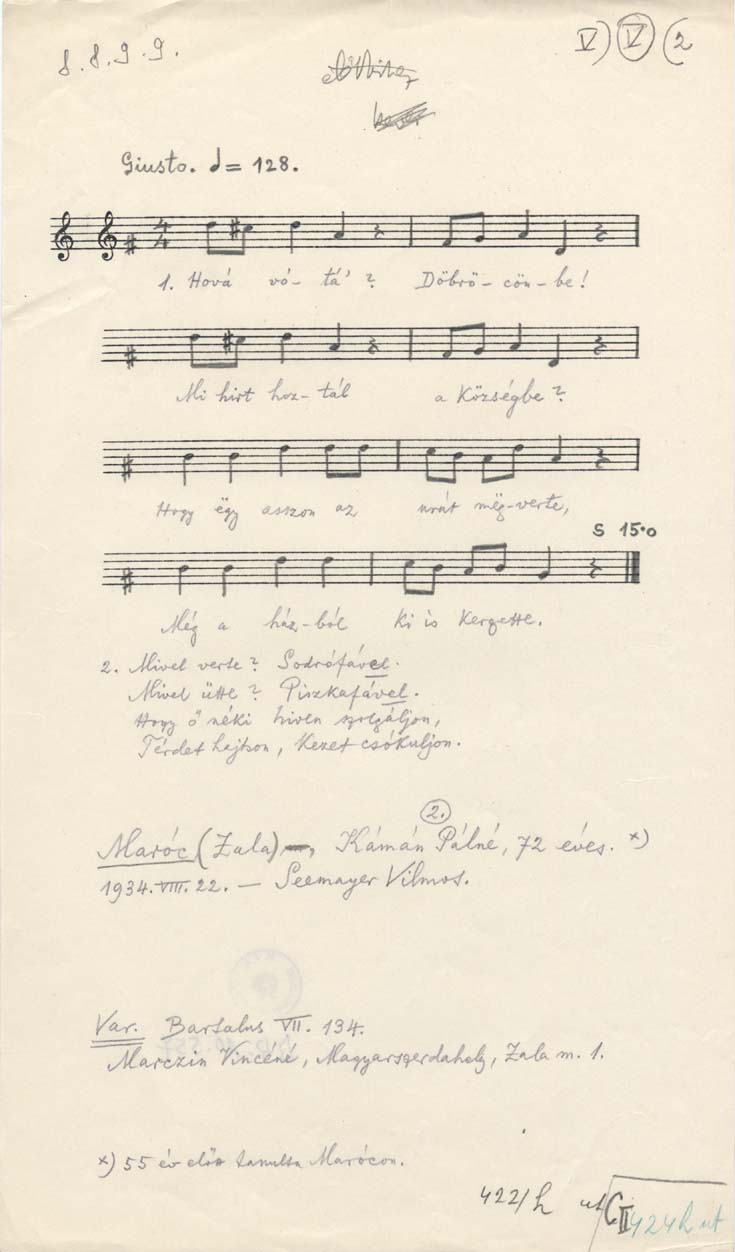 8.8.9.9.
V) V (2
Giusto. = 128.
1. Hová vó- tá' ? Döbrö- cön- be!
Mi hirt hoz- tál a községbe?
Hogy ëgy asszon az urát mëg-verte,
S 15·0
Még a ház-ból ki is kergette.
2. Mivel verte? Sodrófável.
Mivel ütte? Piszkafável.
Hogy ő néki hiven szolgáljon,
Térdet hajtson, kezet csókuljon.
2.
Maróc (Zala), Kámán Pálné, 72 éves. x)
1934. VIII. 22. — Seemayer Vilmos.
Var. Bartalus VII. 134.
Marczin Vincéné, Magyarszerdahely, Zala m. 1.
x) 55 év előtt tanulta Marócon.
422/h ut CII 424h ut